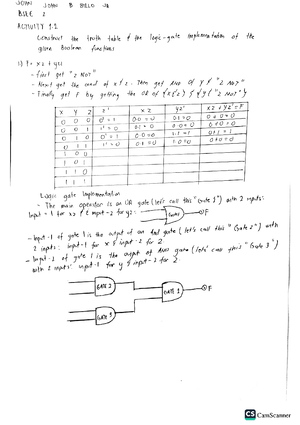 JOHN JOHN B BILLO JR
BSEE 2
ACTIVITY 1.2
Construct the truth table & the logic-gate implementation of the
given Boolean functions
1) F = xz + yz'
- First get "z Not"
- Next get the And of x & z. Then get And of y & "z Not"
- Finally get F by getting the OR of (x & z) & (y & "z Not")
x y z z' xz yz' xz + yz' = F
0 0 0 0' = 1 0·0 = 0 0·1 = 0 0 + 0 = 0
0 0 1 1' = 0 0·1 = 0 0·0 = 0 0 + 0 = 0
0 1 0 0' = 1 0·0 = 0 1·1 = 1 0 + 1 = 1
0 1 1 1' = 0 0·1 = 0 1·0 = 0 0 + 0 = 0
1 0 0
1 0 1
1 1 0
1 1 1
Logic gate Implementation
- The main operation is an OR gate (let's call this "Gate 1") with 2 inputs:
Input-1 for xz & input-2 for yz'. Gate 1 F
- Input-1 of gate 1 is the output of an And gate (let's call this "Gate 2") with
2 inputs: input-1 for x & input-2 for z
- Input-2 of gate 1 is the output of AND gate (let's call this "Gate 3")
with 2 inputs: input-1 for y & input-2 for z
GATE 2
GATE 1 F
GATE 3
CS CamScanner